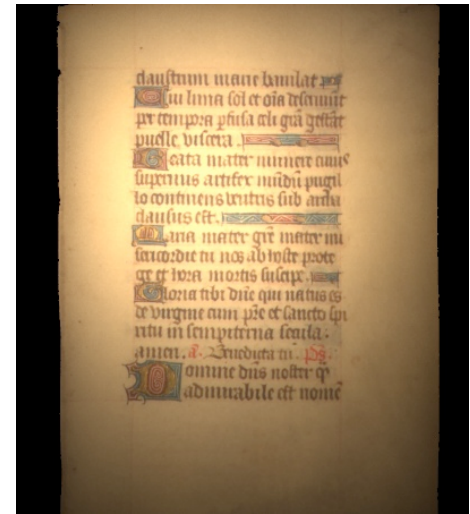 claustrum marie baiulat. ꝑꝯ
Cui luna sol et oĩa deseruiũt
per tempora ꝑfusa celi grã gestãt
puelle viscera.
Beata mater munere cuius
supernus artifex mũdũ pugil
lo continens ventris sub archa
clausus est.
Maria mater grẽ mater mi
sericordie tu nos ab hoste prote
ge et hora mortis suscipe.
Gloria tibi dñe qui natus es
de virgine cum pr̃e et sancto spi
ritu in sempiterna secula.
amen. a. Benedicta tu. p̃s.
Domine dñs noster q̃
admirabile est nomẽ